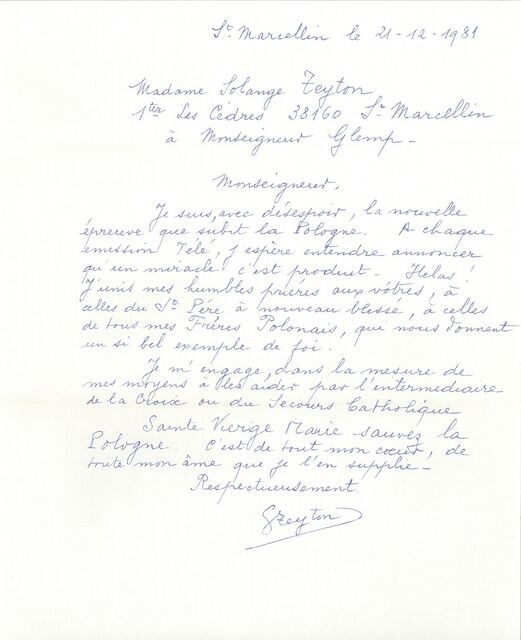 St Marcellin le 21-12-1981
Madame Solange Teyton
1ter Les Cèdres 38160 St Marcellin
à Monseigneur Glemp -
Monseigneur,
Je suis, avec désespoir, la nouvelle
épreuve que subit la Pologne. A chaque
émission Télé, j'espère entendre annoncer
qu'un miracle c'est produit - Hélas !
J'unis mes humbles prières aux vôtres, à
celles du St Père à nouveau blessé, à celles
de tous mes Frères Polonais, qui nous donnent
un si bel exemple de foi.
Je m'engage, dans la mesure de
mes moyens à les aider par l'intermédiaire
de la Croix ou du Secours Catholique
Sainte Vierge Marie sauvez la
Pologne. C'est de tout mon coeur, de
toute mon âme que je l'en supplie -
Respectueusement
SZeyton